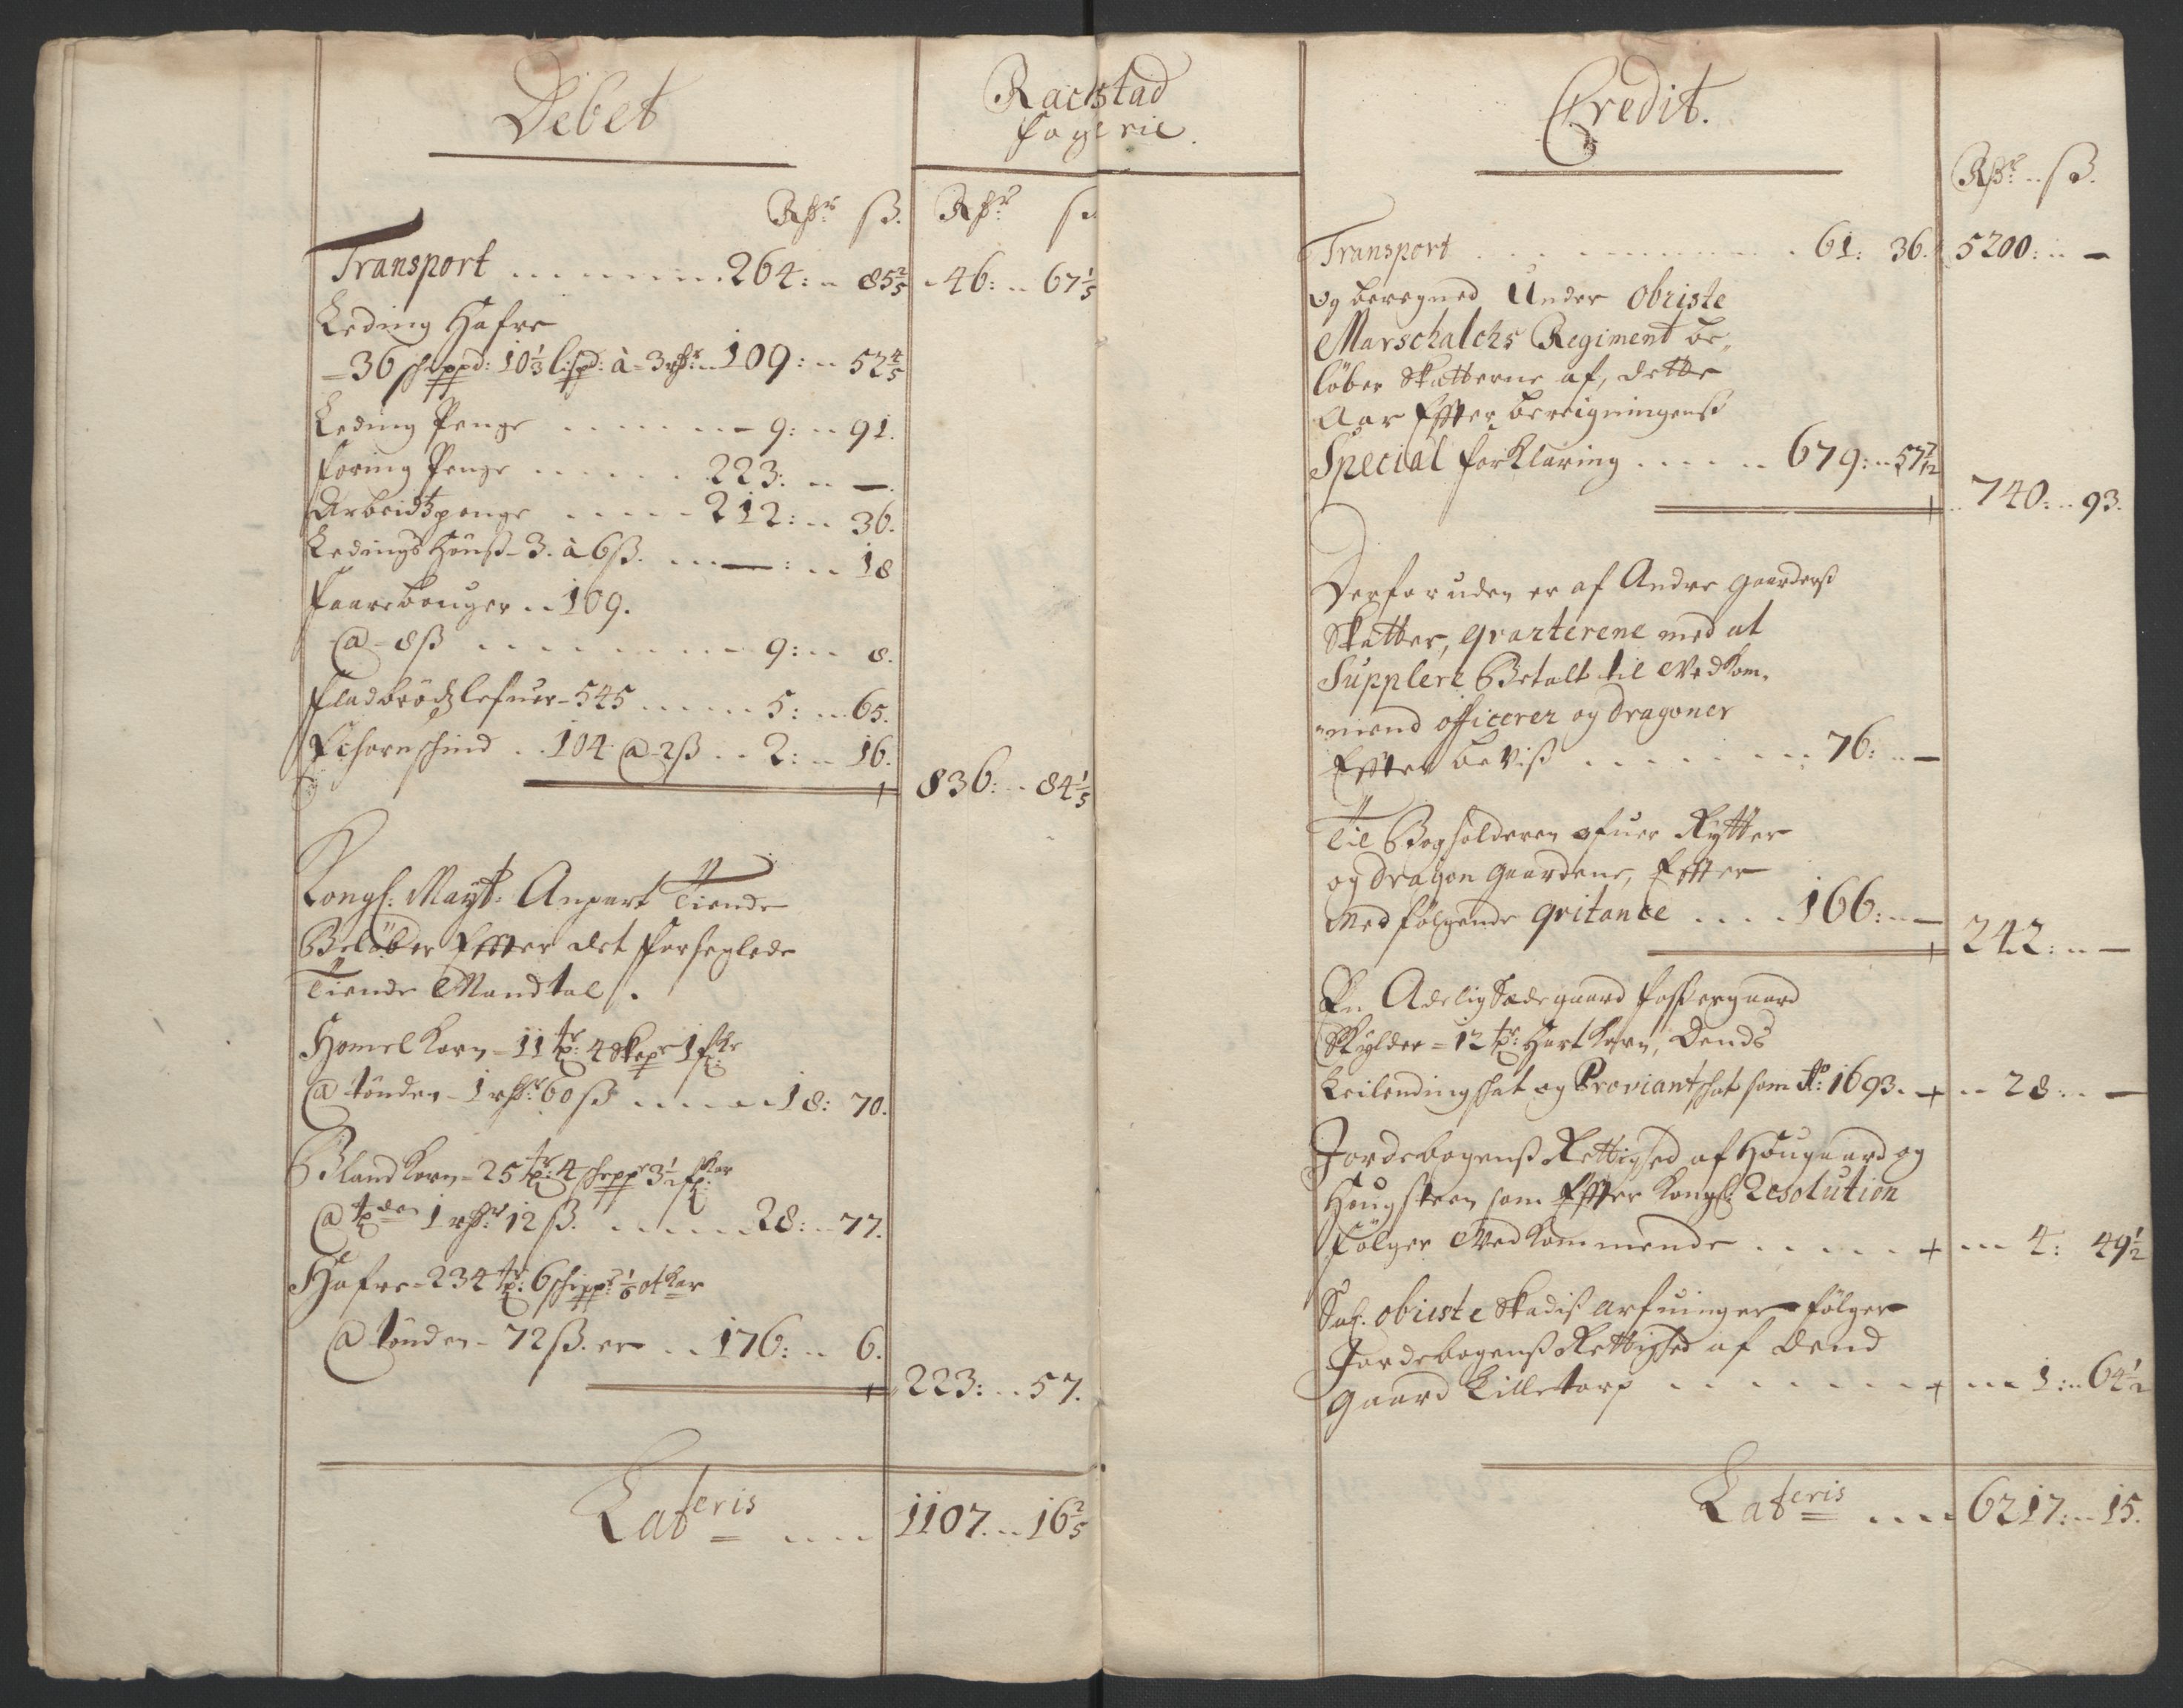 Debet
Rackstad
fogerie.
Rhsr ß. Rhsr ß
Transport ........ 264: .. 85 2/5 .. 46: .. 67 1/5
Leding Hafre
= 36 schippd: 10 1/3 lispd: à = 3 rhsr .. 109: .. 52 4/5
Leding Penge ....... 9: .. 91.
foring Penge ...... 223: .. —.
Arbeidtzpenge ..... 212: .. 36.
Ledings Hönß - 3. à 6 ß. ... —: .. 18
faarebouger .. 109.
@ - 8 ß ........ 9: .. 8.
fladbrödz lefuer - 545 ..... 5: .. 65.
Echornschind .. 104 @ 2 ß .. 2: .. 16.
836: .. 84 1/5
Kongl: Mayts: Anpart Tiende
Beløber Effter det forseglede
Tiende Mandtal.
Homel Korn - 11 tr: 4 skepr 1 fkr
@ tönden - 1 rhsr 60 ß ..... 18: 70.
Bland Korn = 25 tr: 4 schepp 3 1/2 fkar
@ tden 1 rhsr 12 ß. ..... 28: .. 77.
Hafre = 234 tr: 6 schippr 1/6 otkar
@ tönden - 72 ß. er .. 176: .. 6.
223: .. 57.
Lateris .... 1107. .. 16 2/5
Credit.
Rhsr .. ß.
Transport .......... 61: 36. 5200: .. —
og beregned Under Obriste
Marschalchs Regiment be„
löber Skatterne af, dette
Aar Effter bereigningenß
Special forklaring ..... 679: .. 57 7/12
740: .. 93.
Derforuden er af Andre gaarderß
Skatter, qvarterene med at
Supplere Betalt til Vedkom„
„miend officerer og dragoner
Effter beviß ........ 76: .. —
Til Bogholderen ofuer Rytter
og dragon gaardene, Effter
Medfölgende qvitance .... 166: .. —
242: .. —
En Adelig Sædegaard Fossergaard
Skylder = 12 tr: Hart Korn, Dends
Leilendingschat og Proviantschat som Ao: 1693. .. 28: .. —
Jordebogenß Rettighed af Hougaard og
Hougsteen som Effter Kongl: Resolution
fölger Ved Kommende ..... 4: 49 1/2
Sal. obriste Skadiß Arfuinger fölger
Jordebogenß Rettighed af Dend
gaard Lilletorp ........ 1: .. 64 1/2
Lateris .... 6217: .. 15.